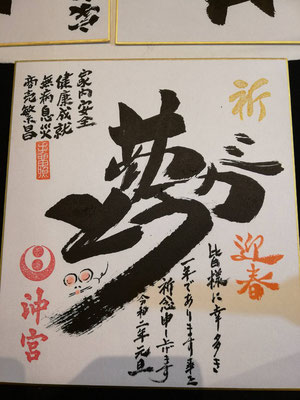 祈
迎春
皆様に幸多き
一年であります
祈念申し上げます
令和二年元旦
家内安全
健康成就
無病息災
商売繁昌
沖宮